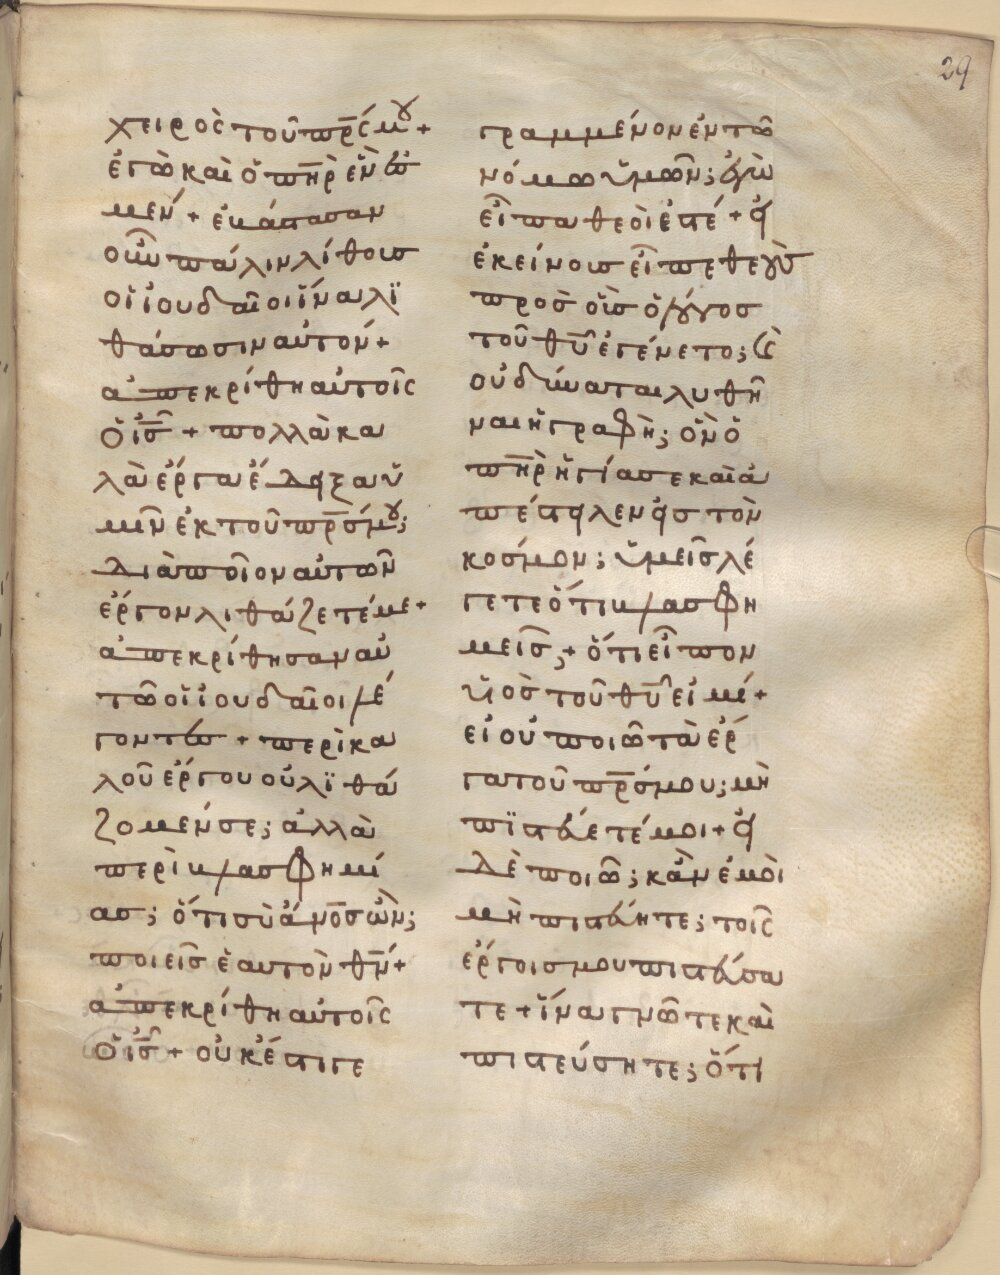 29
χειρὸς τοῦ πρς μου +
ἐγὼ καὶ ὁ πηρ ἕν ἐσ
μεν + ἐβάστασαν
οὖν πάλιν λίθους
οἱ ἰουδαῖοι ἵνα λι
θάσωσιν αὐτόν +
ἀπεκρίθη αὐτοῖς
ὁ ις + πολλὰ κα
λὰ ἔργα ἔδειξα ὑ
μῖν ἐκ τοῦ πρς μου;
διὰ ποῖον αὐτῶν
ἔργον λιθάζετέ με +
ἀπεκρίθησαν αὐ
τῶ οἱ ἰουδαῖοι λέ
γοντες + περὶ κα
λοῦ ἔργου οὐ λιθά
ζομέν σε; ἀλλὰ
περὶ βλασφημί
ας; ὅτι σὺ ανος ὢν;
ποιεῖς ἑαυτὸν θν +
ἀπεκρίθη αὐτοῖς
ὁ ις + οὐκ ἔστι γε
γραμμένον ἐν τῶ
νόμω ὑμῶν; ἐγὼ
εἶπα θεοί ἐστέ + εἰ
ἐκείνους εἶπε θεοὺς
πρὸς οὓς ὁ λόγος
τοῦ θυ ἐγένετο; καὶ
οὐ δύναται λυθῆ
ναι ἡ γραφὴ; ὃν ὁ
πηρ ἡγίασε καὶ ἀ
πέστειλεν εἰς τὸν
κόσμον; ὑμεῖς λέ
γετε ὅτι βλασφη
μεῖς; + ὅτι εἶπον
υἱὸς τοῦ θυ εἰμί +
εἰ οὐ ποιῶ τὰ ἔρ
γα τοῦ πρς μου; μὴ
πιστεύετέ μοι + εἰ
δὲ ποιῶ; κἂν ἐμοὶ
μὴ πιστεύητε; τοῖς
ἔργοις μου πιστεύσα
τε + ἵνα γνῶτε καὶ
πιστεύσητε; ὅτι